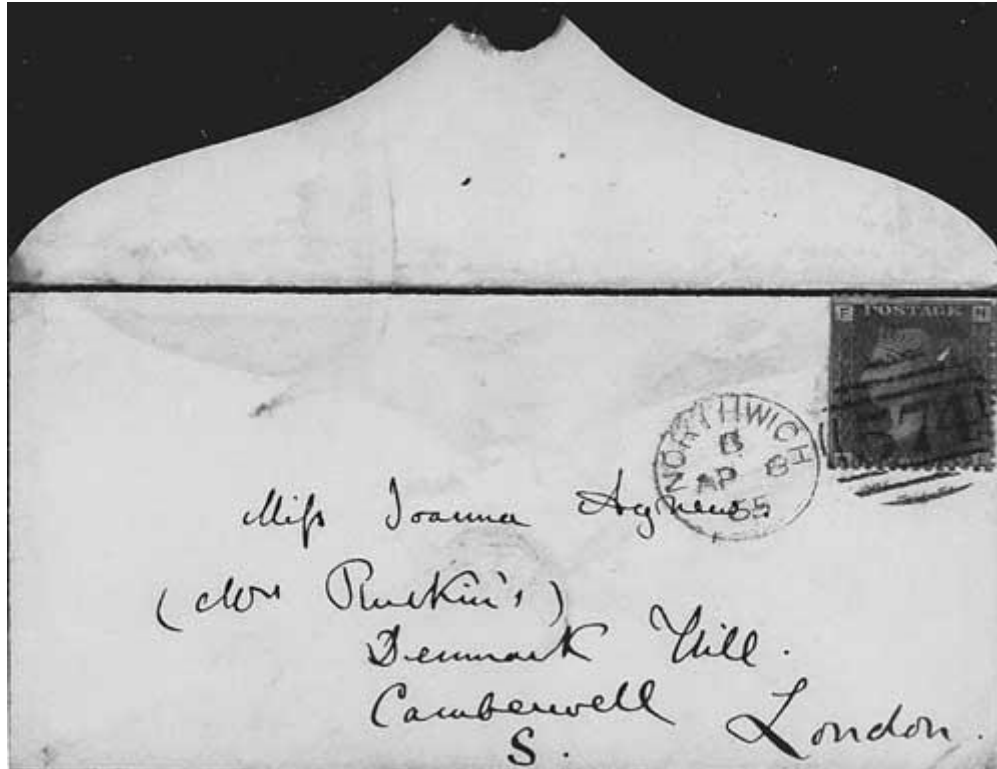 E POSTAGE N
574
NORTHWICH
B
AP 8
65
Miss Joanna Agnew
(Mrs Ruskin's)
Denmark Hill.
Camberwell
London.
S.